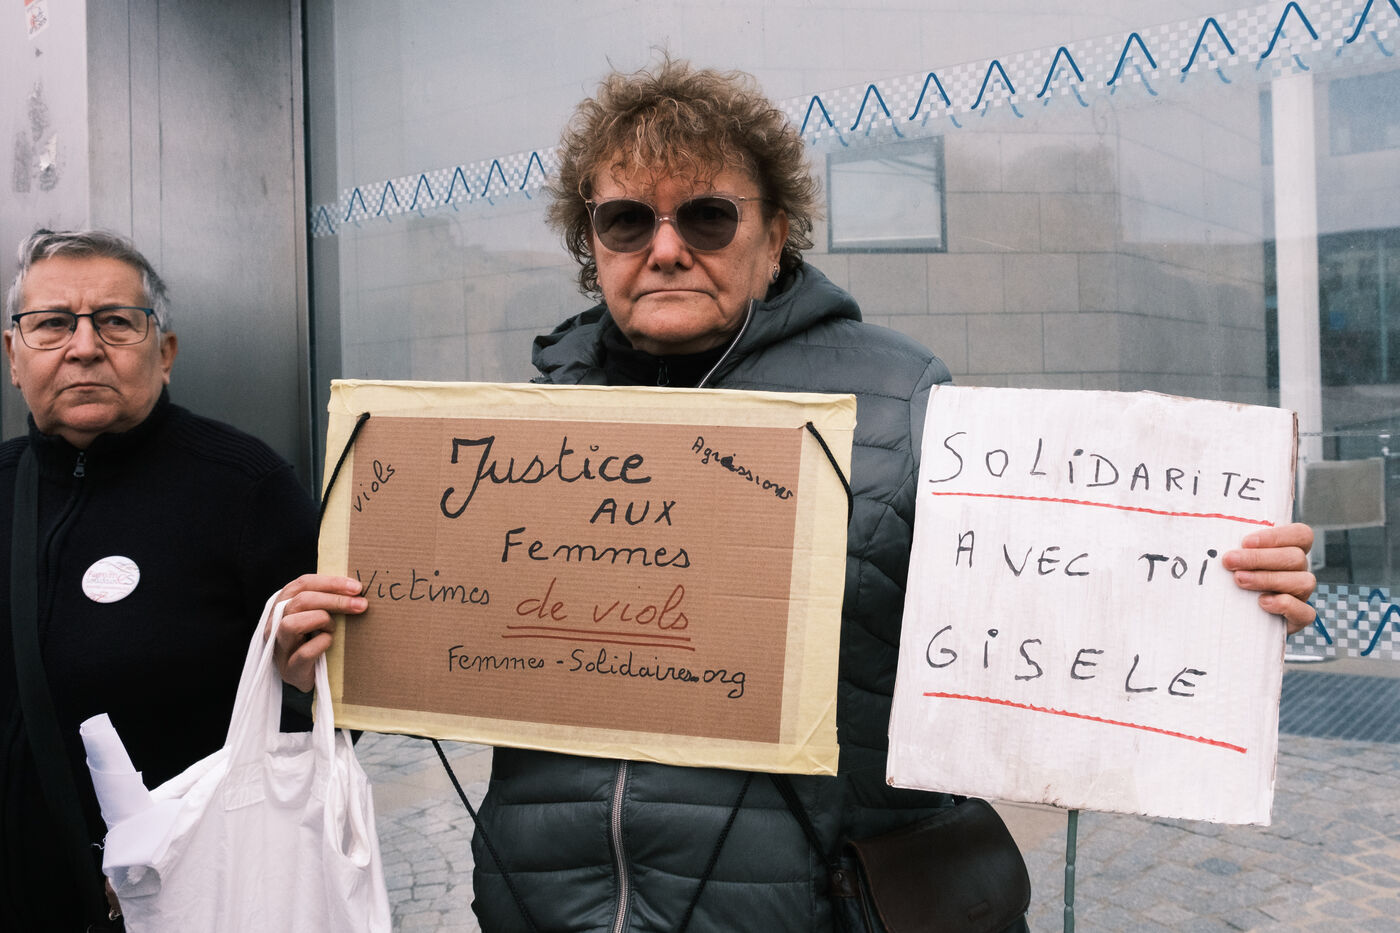 Justice
AUX
Femmes
Victimes de viols
Femmes-Solidaires.org
viols
Agressions
SOLIDARITE
AVEC TOI
GISELE